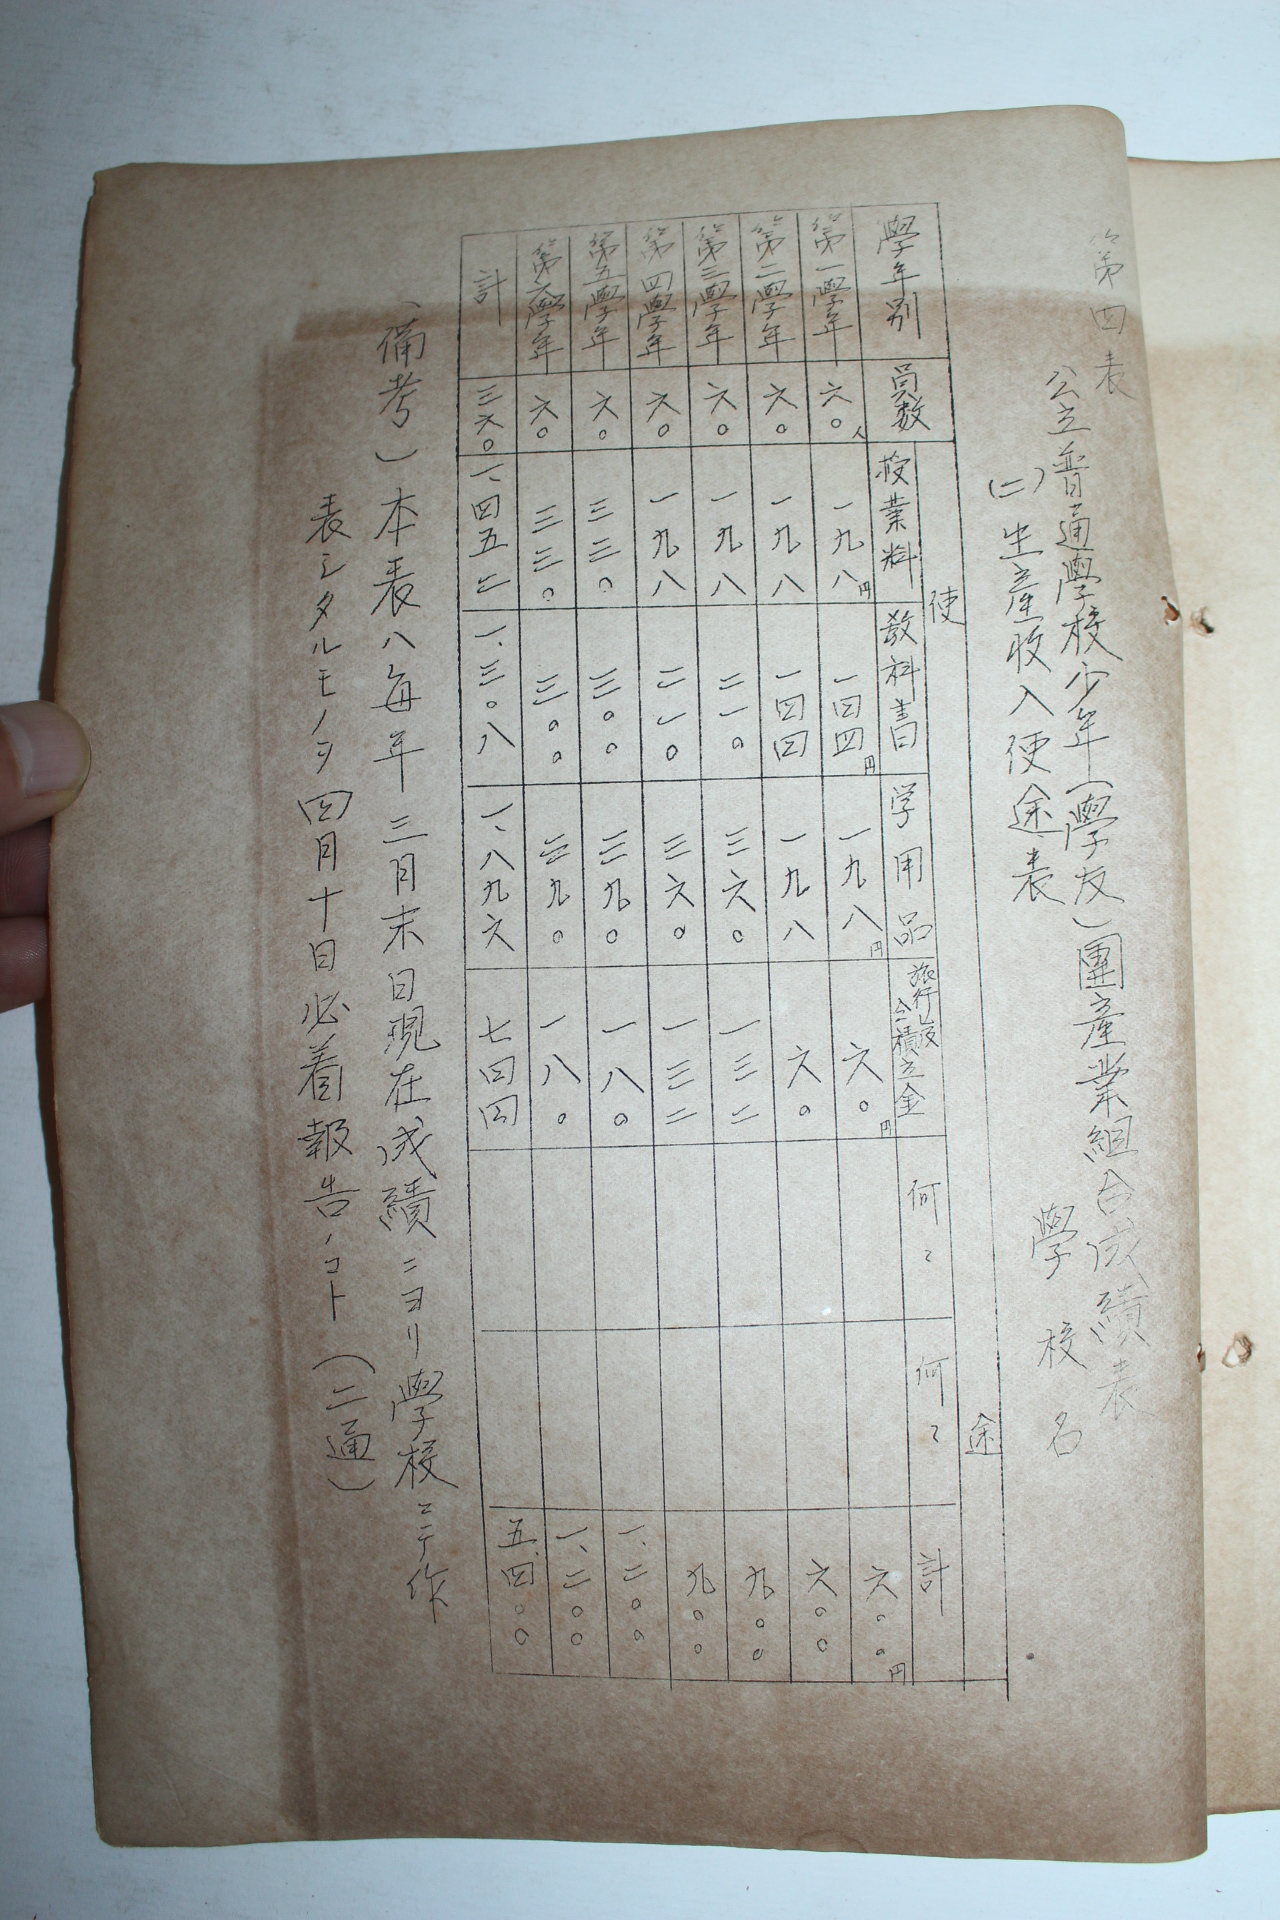 第四表
公立普通學校少年(學友)團產業組合成績表
(二)生產收入使途表
學校名
使途
學年別 員数 授業料 教科書 学用品 旅行及積立金 何々 何々 計
第一學年 六〇人 一九八円 一四四円 一九八円 六〇円 六〇〇円
第二學年 六〇 一九八 一四四 一九八 六〇 六〇〇
第三學年 六〇 一九八 二一〇 三六〇 一三二 九〇〇
第四學年 六〇 一九八 二一〇 三六〇 一三二 九〇〇
第五學年 六〇 三三〇 三〇〇 三九〇 一八〇 一、二〇〇
第六學年 六〇 三三〇 三〇〇 三九〇 一八〇 一、二〇〇
計 三六〇 一、四五二 一、三〇八 一、八九六 七四四 五、四〇〇
(備考)本表ハ每年三月末日現在成績ニヨリ學校ニテ作
表シタルモノヲ四月十日必着報告ノコト(二通)